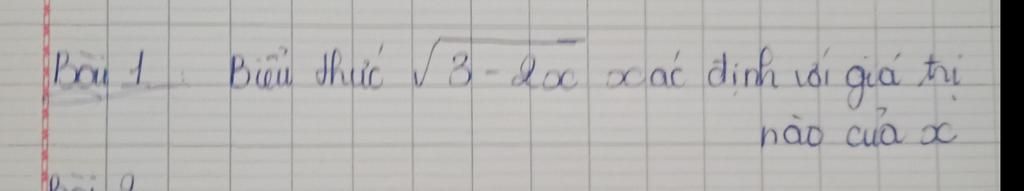 Bài 1. Biểu thức √3 - 2x xác định với giá trị
nào của x